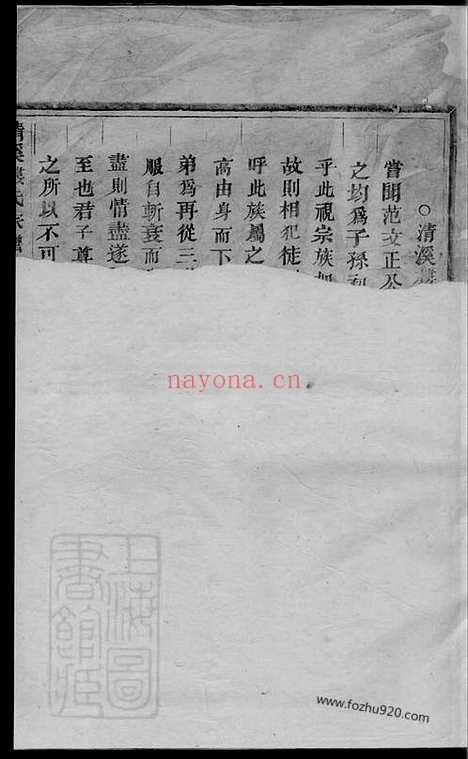 ○清溪
嘗聞范文正公
之均爲子孫
乎此視宗族如
故則相犯徒
呼此族屬之
高由身而下
弟爲再從三
服自斬衰而
盡則情盡遂
至也君子尊
之所以不可
清溪 氏
nayona.cn
上海圖書館藏
www.fozhu920.com